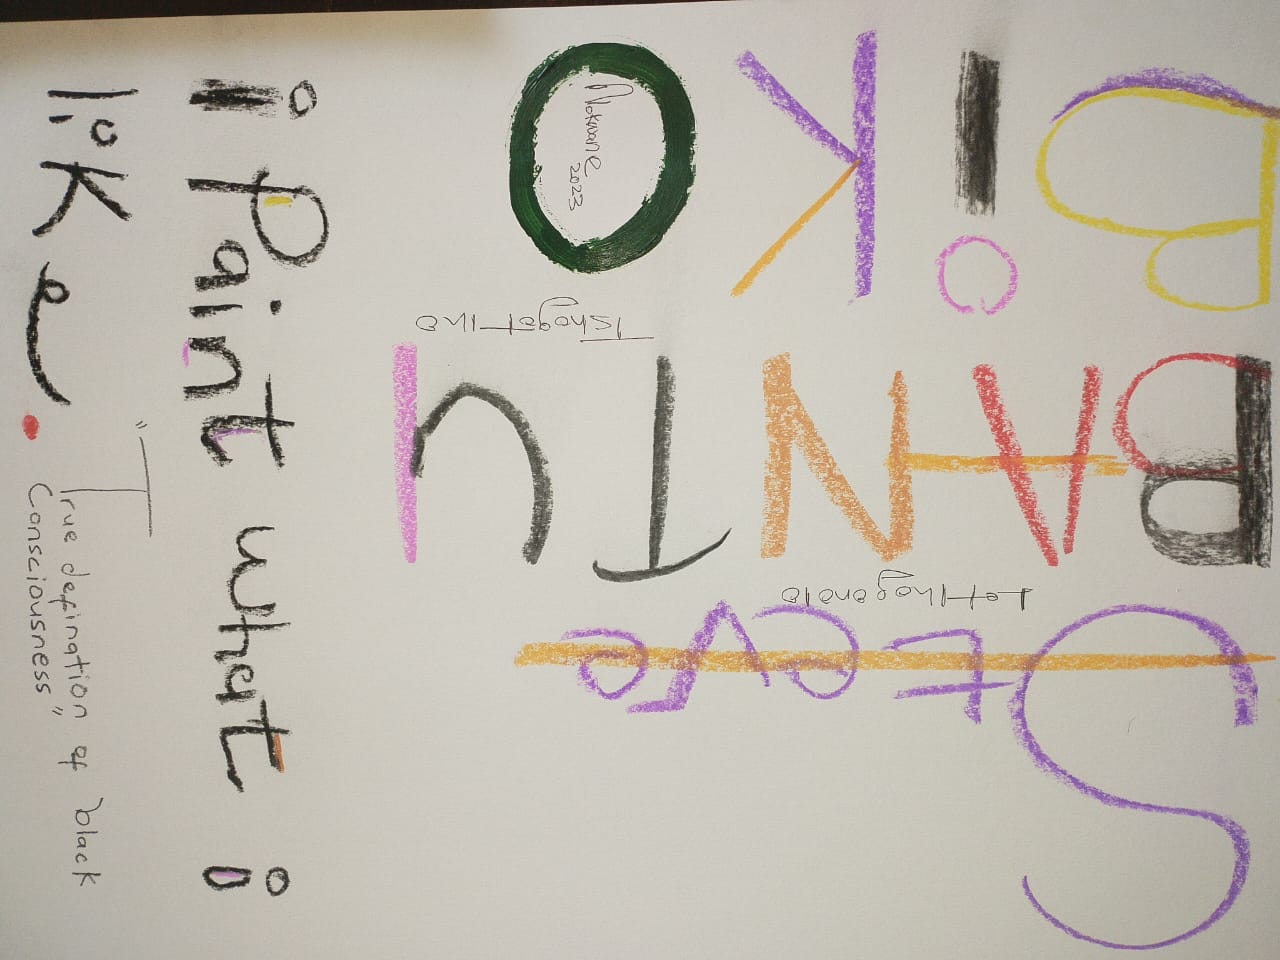 BiKO
2023
BANTU
Steve
Letlhogonolo
i Paint what i
liKe.
"True defination of black
Consciousness"